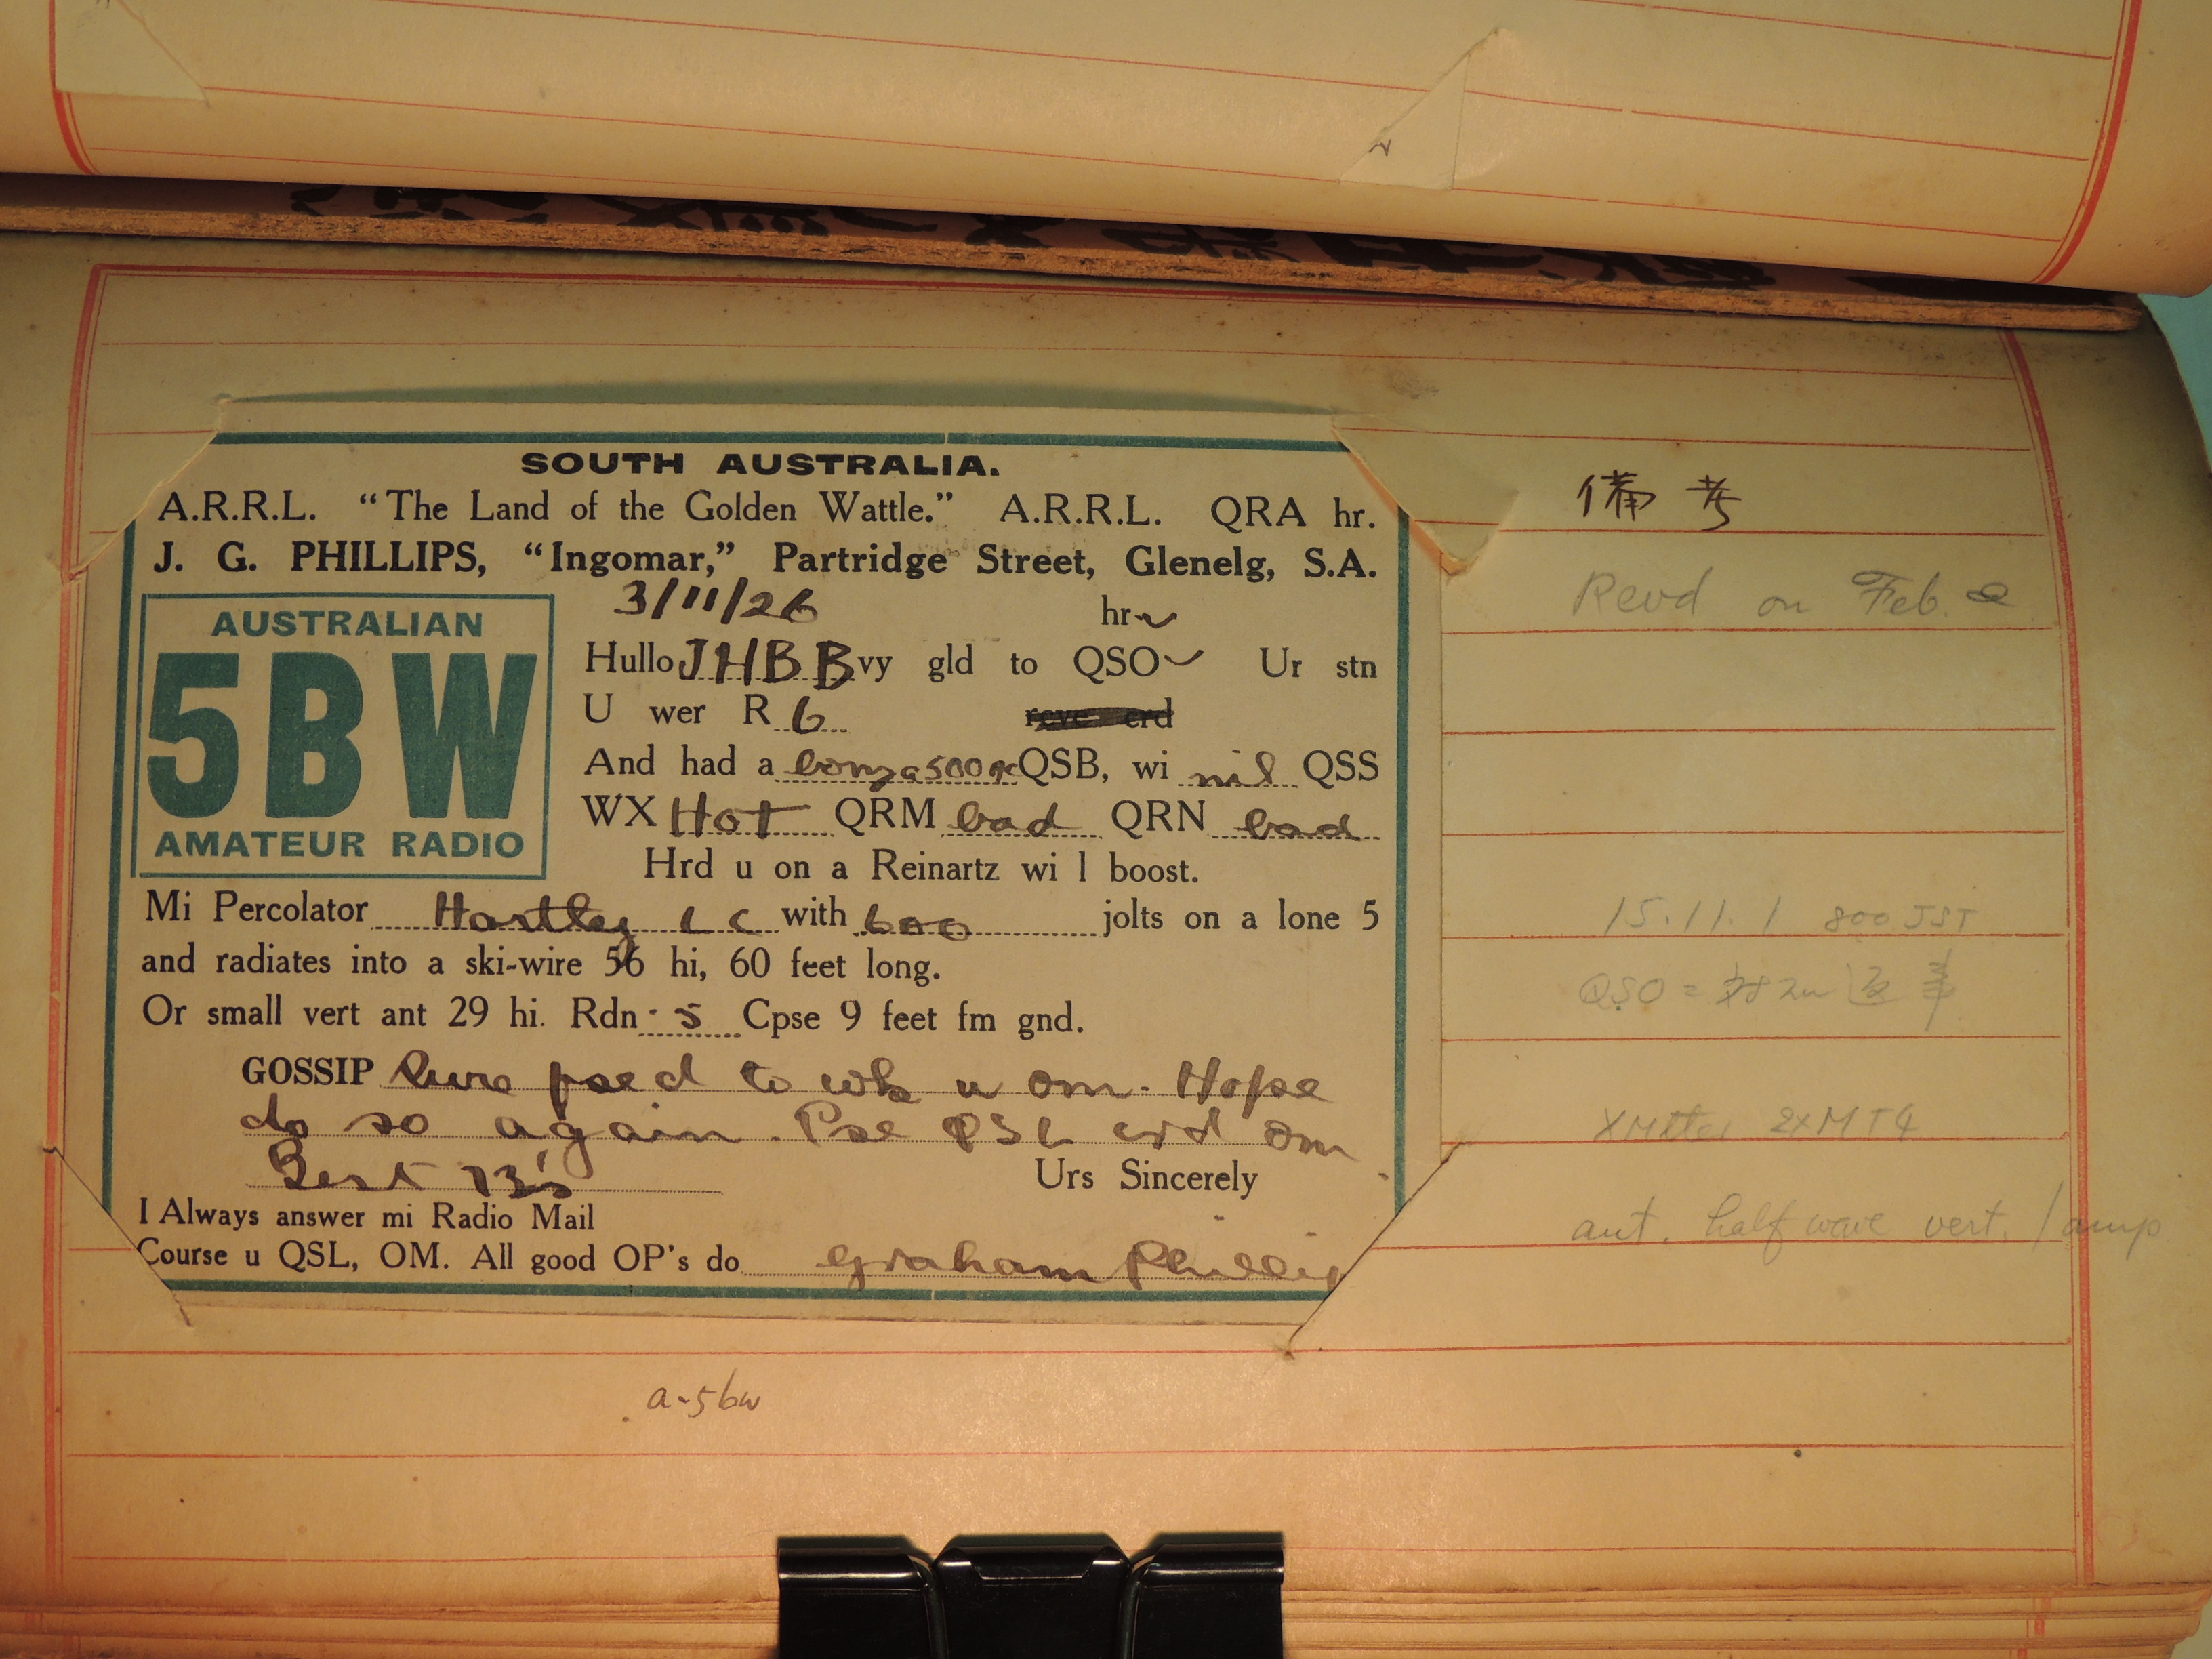 SOUTH AUSTRALIA.
A.R.R.L. "The Land of the Golden Wattle." A.R.R.L. QRA hr.
J. G. PHILLIPS, "Ingomar," Partridge Street, Glenelg, S.A.
3/11/26 hr
AUSTRALIAN
5BW
AMATEUR RADIO
Hullo JHBB vy gld to QSO Ur stn
U wer R 6
And had a bonza 500 QSB, wi nil QSS
WX Hot QRM bad QRN bad
Hrd u on a Reinartz wi l boost.
Mi Percolator Hartley LC with 600 jolts on a lone 5
and radiates into a ski-wire 56 hi, 60 feet long.
Or small vert ant 29 hi. Rdn ·5 Cpse 9 feet fm gnd.
GOSSIP psed to wk u om. Hope
do so again. Pse QSL crd om
Best 73's Urs Sincerely
I Always answer mi Radio Mail
Course u QSL, OM. All good OP's do Graham Phillip
a-5bw
備考
Revd on Feb.
15.11.1 800 JST
QSO =
Xmtter 2xMT4
ant. half wave vert. 1 amp